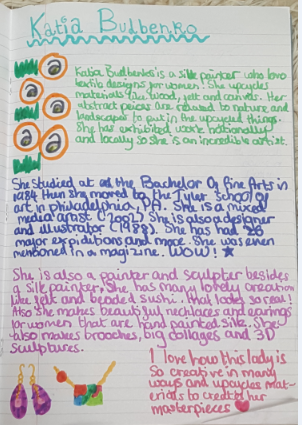 Katia Budbenko
Katia Budbenko is a silk painter who love
textile designs for women! She upcycles
materials like wood, felt and canvas. Her
abstract peices are related to nature and
landscapes to put in the upcycled things.
She has exhibited work nationally
and locally so she is an incredible artist.
She studied at the Bachelor Of fine Arts in
1984 then She moved to The Tyler School of
art in Philadelphia, PA. She is a mixed
media artist (2002) She is also a designer
and illustrator (1988). She has had 26
major expiditions and more. She was even
mentioned in a magizine. WOW!
She is also a painter and sculptor besides
a silk painter. She has many lovely creation
like felt and beaded sushi. that looks so real!
Also she makes beautiful necklaces and earings
for women that are hand painted silk. She
also makes brooches, big collages and 3D
sculptures.
I love how this lady is
So creative in many
ways and upycles mat-
erials to create her
masterpieces